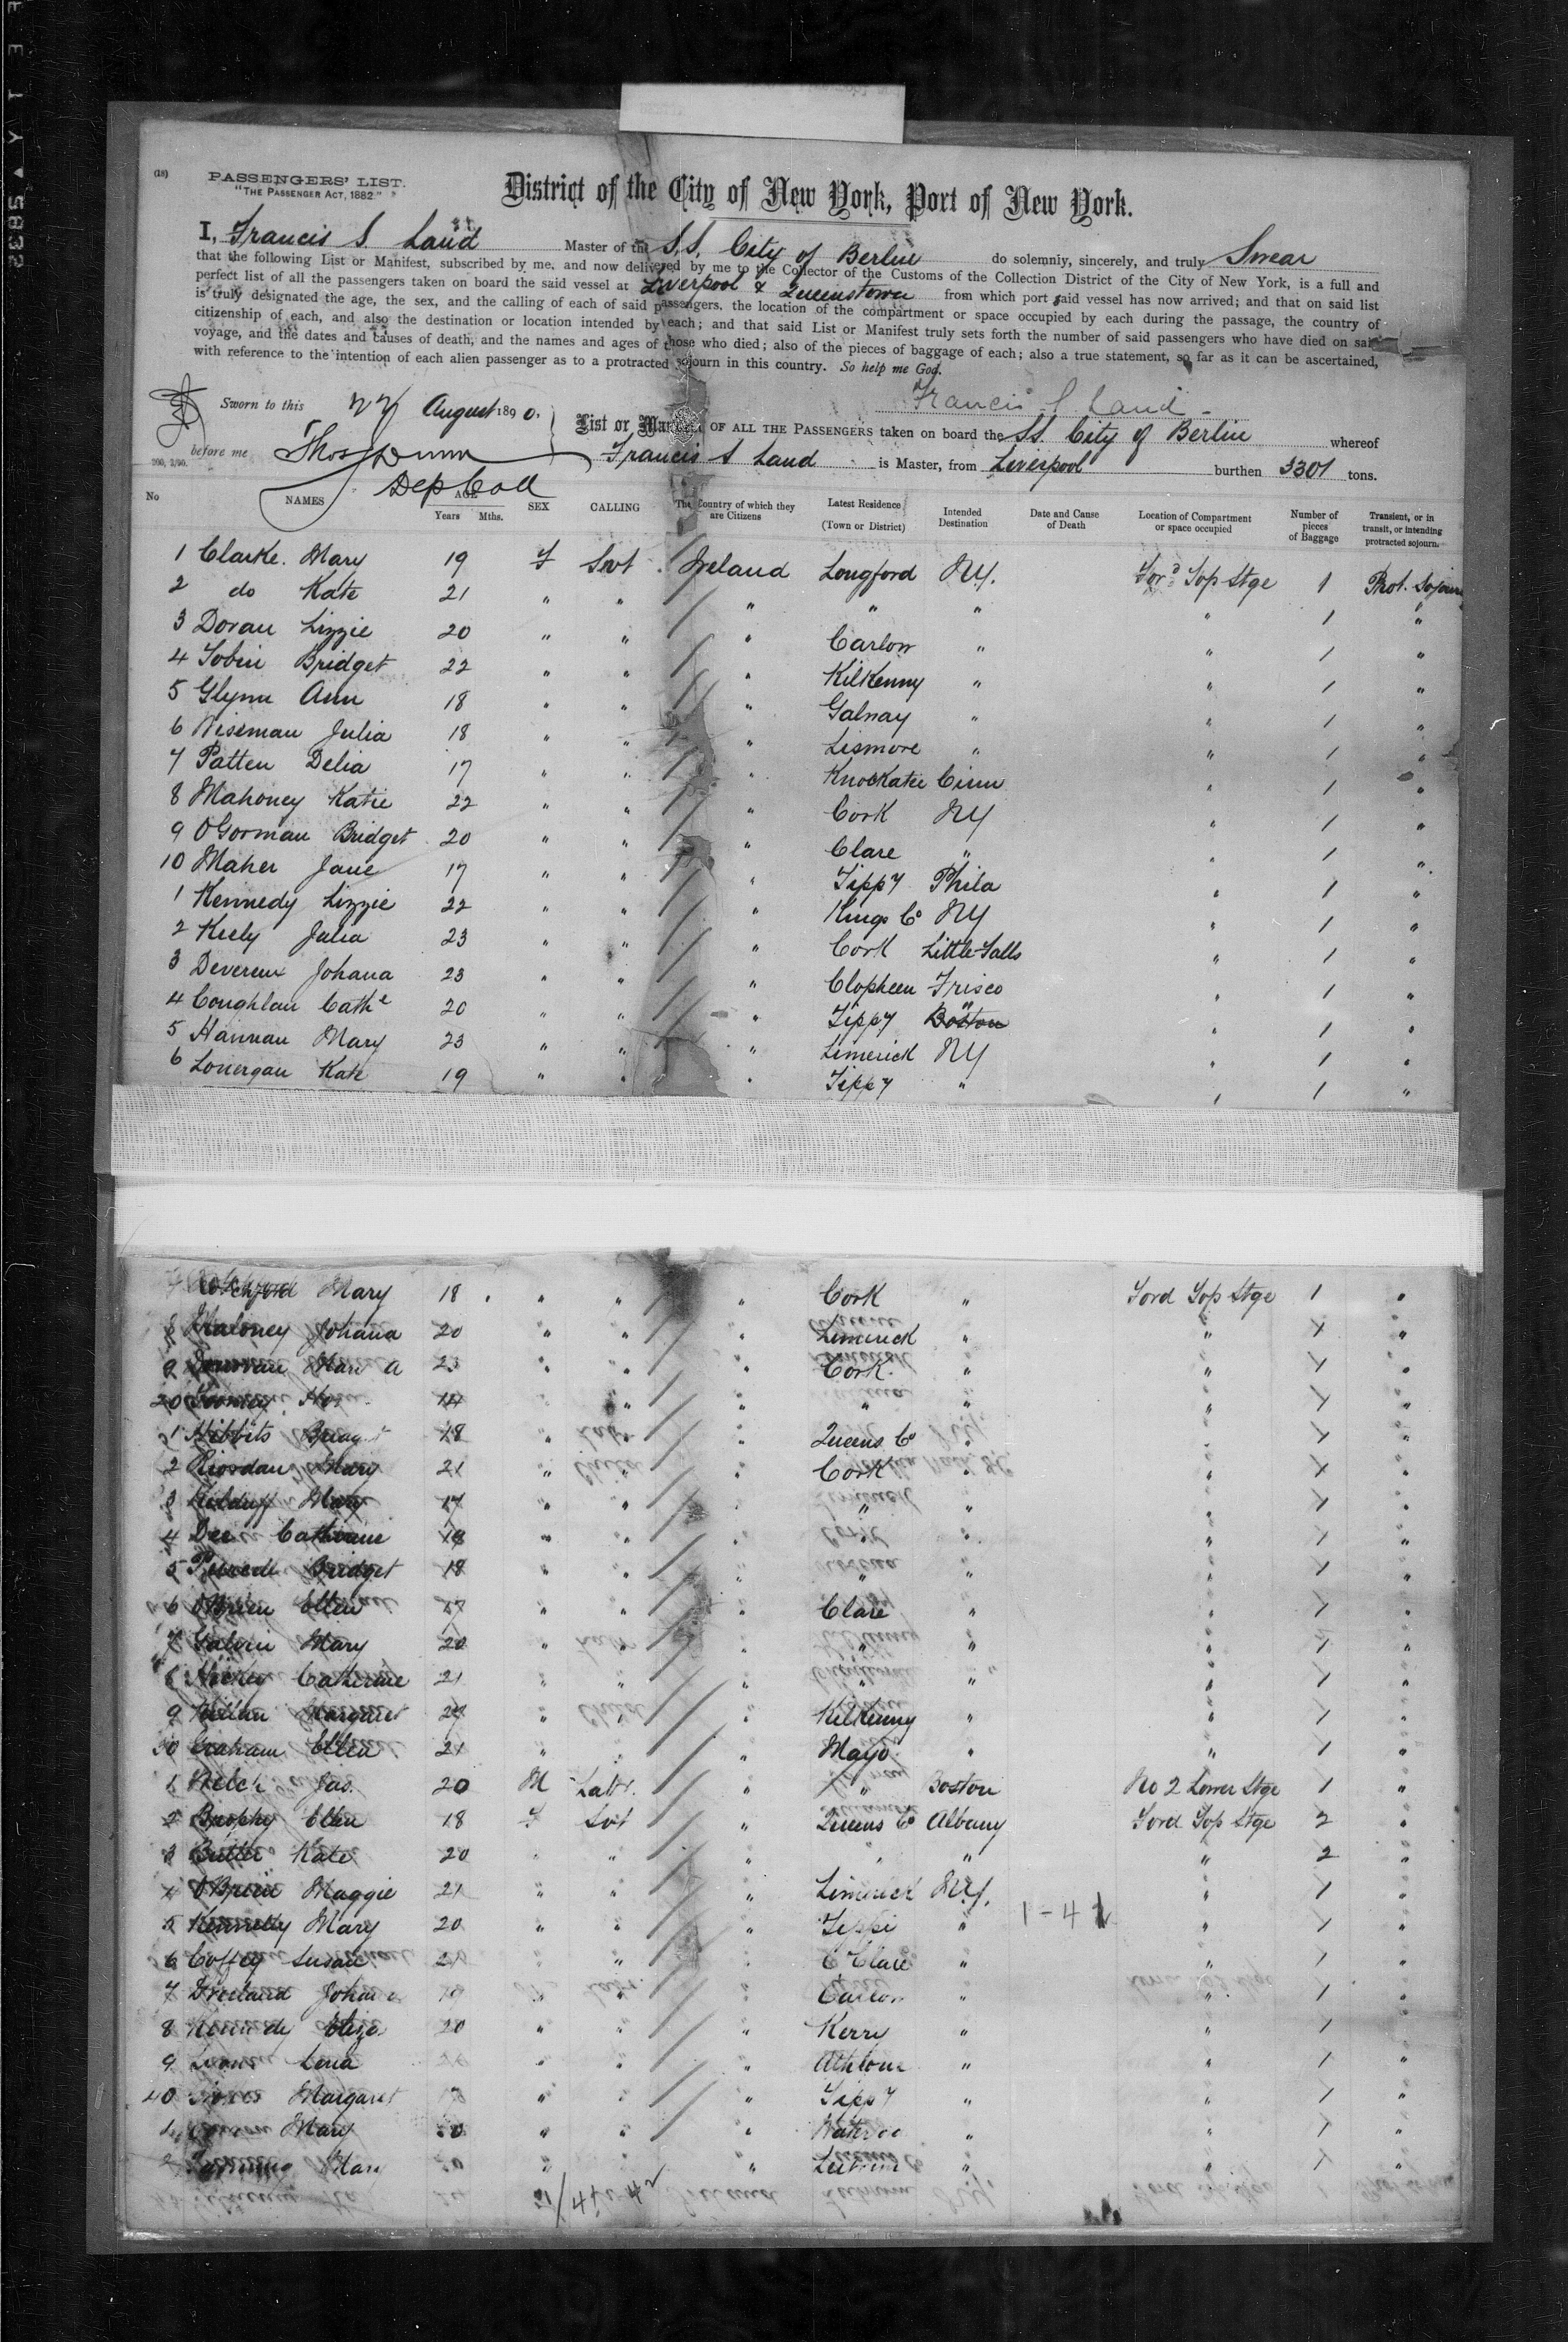 (18)
PASSENGERS' LIST.
"THE PASSENGER ACT, 1882."
District of the City of New York, Port of New York.
I, Francis S. Land Master of the S.S. City of Berlin do solemnly, sincerely, and truly Swear
that the following List or Manifest, subscribed by me, and now delivered by me to the Collector of the Customs of the Collection District of the City of New York, is a full and
perfect list of all the passengers taken on board the said vessel at Liverpool & Queenstown from which port said vessel has now arrived; and that on said list
is truly designated the age, the sex, and the calling of each of said passengers, the location of the compartment or space occupied by each during the passage, the country of
citizenship of each, and also the destination or location intended by each; and that said List or Manifest truly sets forth the number of said passengers who have died on said
voyage, and the dates and causes of death, and the names and ages of those who died; also of the pieces of baggage of each; also a true statement, so far as it can be ascertained,
with reference to the intention of each alien passenger as to a protracted sojourn in this country. So help me God.
Francis S Land
Sworn to this August 1890.
before me Thos Dunn
Dep Coll
List or Manifest OF ALL THE PASSENGERS taken on board the SS. City of Berlin whereof
Francis S Land is Master, from Liverpool burthen 5301 tons.
No NAMES AGE Years Mths. SEX CALLING The Country of which they are Citizens Latest Residence (Town or District) Intended Destination Date and Cause of Death Location of Compartment or space occupied Number of pieces of Baggage Transient, or in transit, or intending protracted sojourn.
1 Clarke. Mary 19 F Svt Ireland Longford N.Y. For'd Top Stge 1 Prot. Sojourn
2 do Kate 21 " " " " " " 1 "
3 Doran Lizzie 20 " " " Carlow " " 1 "
4 Tobin Bridget 22 " " " Kilkenny " " 1 "
5 Glynn Ann 18 " " " Galway " " 1 "
6 Wiseman Julia 18 " " " Lismore " " 1 "
7 Patten Delia 17 " " " Knockatee Cinn " 1 "
8 Mahoney Katie 22 " " " Cork NY " 1 "
9 O'Gorman Bridget 20 " " " Clare " " 1 "
10 Maher Jane 17 " " " Tippy Phila " 1 "
1 Kennedy Lizzie 22 " " " Kings Co NY " 1 "
2 Kiely Julia 23 " " " Cork Little Falls " 1 "
3 Devereux Johana 23 " " " Clogheen Frisco " 1 "
4 Coughlan Cathe 20 " " " Tippy Boston " " 1 "
5 Hannan Mary 23 " " " Limerick NY " 1 "
6 Lonergan Kate 19 " " " Tippy " " 1 "
7 Rotchford Mary 18 " " " Cork " Ford Top Stge 1 "
8 Maloney Johana 20 " " " Limerick " " 1 "
9 Donovan Mary A " " " Cork " " 1 "
20 " " " " " " 1 "
1 Hibbits 18 " " Queens Co " " 1 "
2 Riordan Mary 21 " " " Cork " " 1 "
3 Kilduff Mary 17 " " " " " " 1 "
4 Dee Catherine 18 " " " " " 1 "
5 Bridget 18 " " " " " " 1 "
6 O'Brien Ellen 17 " " " Clare " " 1 "
7 Galvin Mary 20 " " " " " " 1 "
8 Hickey Catherine 21 " " " " " " 1 "
9 Margaret " " " Kilkenny " " 1 "
30 Graham Ellen 21 " " " Mayo " " 1 "
1 Welch Jas. 20 M Labr. " " Boston No 2 Lower Stge 1 "
2 Brophy Ellen 18 F Svt " Queens Co Albany Ford Top Stge 2 "
3 Butler Kate 20 " " " " " " 2 "
4 O'Brien Maggie 21 " " " Limerick N.Y. " 1 "
5 Kennelly Mary 20 " " " Tippi " 1-42 " 1 "
6 Coffey Susan " " " C Clare " " 1 "
7 " " Carlow " " 1 "
8 Kennedy Eliza 20 " " " Kerry " " 1 "
9 Lena " " " Athlone " " 1 "
40 Margaret " " " Tippy " " 1 "
1 Mary 20 " " " " " 1 "
2 Mary " " " Leitrim " " 1 "